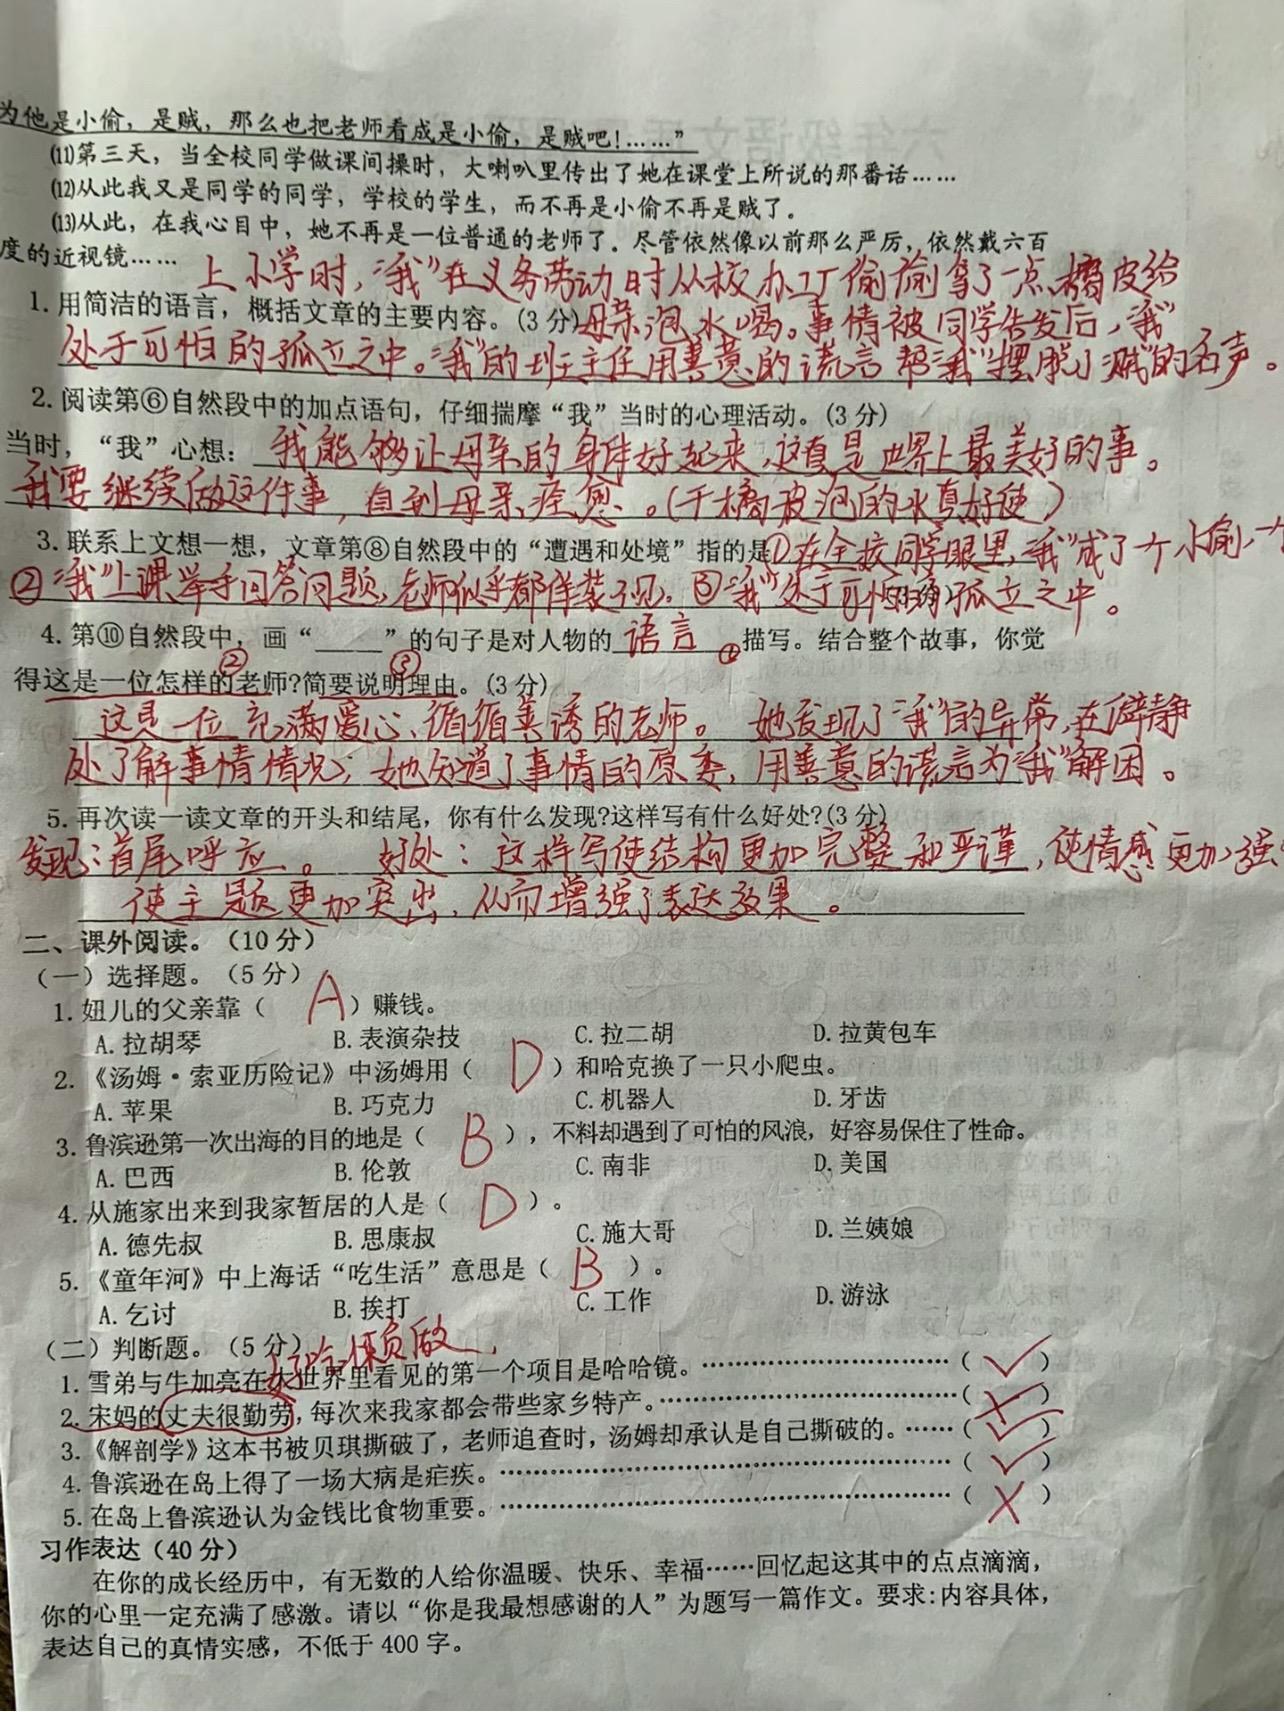 为他是小偷，是贼，那么也把老师看成是小偷，是贼吧！……”
⑾第三天，当全校同学做课间操时，大喇叭里传出了她在课堂上所说的那番话……
⑿从此我又是同学的同学，学校的学生，而不再是小偷不再是贼了。
⒀从此，在我心目中，她不再是一位普通的老师了。尽管依然像以前那么严厉，依然戴六百
度的近视镜……
上小学时，“我”在义务劳动时从校办工厂偷偷拿了一点橘皮给
1. 用简洁的语言，概括文章的主要内容。(3 分)母亲泡水喝。事情被同学告发后，“我”
处于可怕的孤立之中。“我”的班主任用善意的谎言帮“我”摆脱了“贼”的名声。
2. 阅读第⑥自然段中的加点语句，仔细揣摩“我”当时的心理活动。(3 分)
当时，“我”心想：我能够让母亲的身体好起来，这真是世界上最美好的事。
我要继续做这件事，直到母亲痊愈。(干橘皮泡的水真好使)
3. 联系上文想一想，文章第⑧自然段中的“遭遇和处境”指的是①在全校同学眼里，“我”成了一个小偷
②“我”上课举手回答问题，老师似乎都佯装不见。③“我”处于可怕的孤立之中。
4. 第⑩自然段中，画“____”的句子是对人物的 语言 ① 描写。结合整个故事，你觉
② ③
得这是一位怎样的老师?简要说明理由。(3 分)
这是一位充满爱心、循循善诱的老师。 她发现了“我”的异常，在僻静
处了解事情情况；她知道了事情的原委，用善意的谎言为“我”解困。
5. 再次读一读文章的开头和结尾，你有什么发现?这样写有什么好处?(3 分)
发现：首尾呼应。 好处：这样写使结构更加完整和严谨，使情感更加强
使主题更加突出，从而增强了表达效果。
二、课外阅读。（10 分）
（一）选择题。（5 分）
1. 妞儿的父亲靠（ A ）赚钱。
A. 拉胡琴 B. 表演杂技 C. 拉二胡 D. 拉黄包车
2. 《汤姆·索亚历险记》中汤姆用（ D ）和哈克换了一只小爬虫。
A. 苹果 B. 巧克力 C. 机器人 D. 牙齿
3. 鲁滨逊第一次出海的目的地是（ B ），不料却遇到了可怕的风浪，好容易保住了性命。
A. 巴西 B. 伦敦 C. 南非 D. 美国
4. 从施家出来到我家暂居的人是（ D ）。
A. 德先叔 B. 思康叔 C. 施大哥 D. 兰姨娘
5. 《童年河》中上海话“吃生活”意思是（ B ）。
A. 乞讨 B. 挨打 C. 工作 D. 游泳
（二）判断题。（5 分）
好吃懒做
1. 雪弟与牛加亮在大世界里看见的第一个项目是哈哈镜。……………………………（ ✓ ）
2. 宋妈的丈夫很勤劳，每次来我家都会带些家乡特产。………………………………（ × ）
3. 《解剖学》这本书被贝琪撕破了，老师追查时，汤姆却承认是自己撕破的。……（ ✓ ）
4. 鲁滨逊在岛上得了一场大病是疟疾。…………………………………………………（ ✓ ）
5. 在岛上鲁滨逊认为金钱比食物重要。…………………………………………………（ × ）
习作表达（40 分）
在你的成长经历中，有无数的人给你温暖、快乐、幸福……回忆起这其中的点点滴滴，
你的心里一定充满了感激。请以“你是我最想感谢的人”为题写一篇作文。要求:内容具体，
表达自己的真情实感，不低于 400 字。